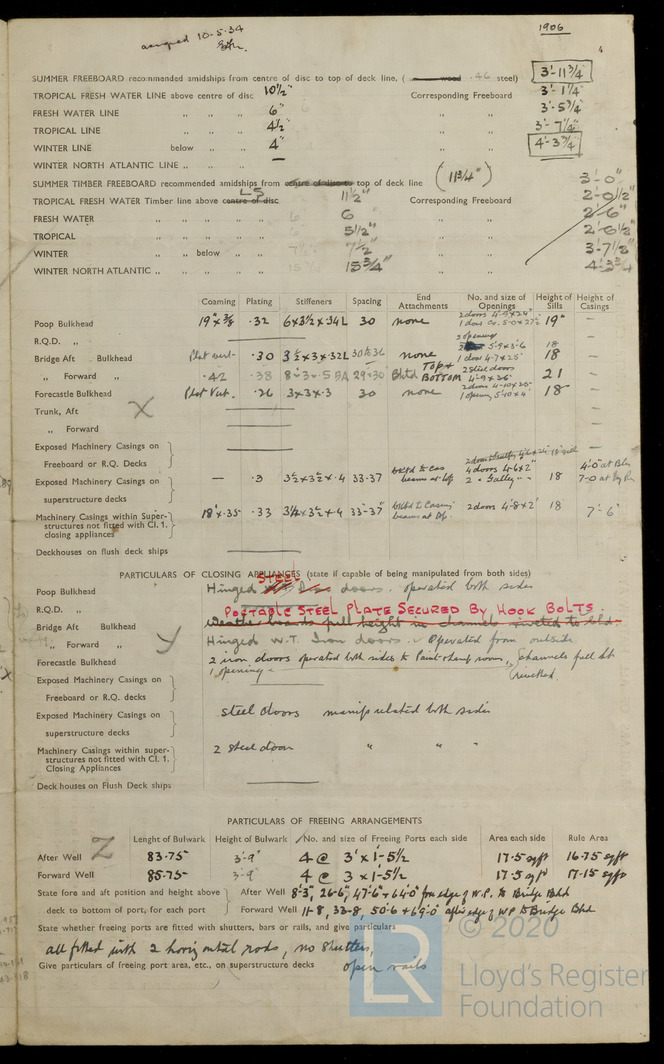 assigned 10-5-34
1906
4
SUMMER FREEBOARD recommended amidships from centre of disc to top of deck line, ( wood .46 steel) 3'-11¾"
TROPICAL FRESH WATER LINE above centre of disc 10½" Corresponding Freeboard 3'-1¼"
FRESH WATER LINE „ „ „ 6" „ „ 3'-5¾"
TROPICAL LINE „ „ „ 4½" „ „ 3'-7¼"
WINTER LINE below „ „ 4" „ „ 4'-3¾"
WINTER NORTH ATLANTIC LINE „ „ —
SUMMER TIMBER FREEBOARD recommended amidships from centre of disc to top of deck line (11¾") 3'-0"
TROPICAL FRESH WATER Timber line above centre of disc LS 11½" Corresponding Freeboard 2'-0½"
FRESH WATER „ „ „ „ 6 „ „ 2'-6"
TROPICAL „ „ „ „ 5½" „ „ 2'-6½"
WINTER „ „ below „ „ 7½" „ „ 3'-7½"
WINTER NORTH ATLANTIC „ „ „ „ 15¾" „ „ 4'-3¾
Coaming Plating Stiffeners Spacing End Attachments No. and size of Openings Height of Sills Height of Casings
Poop Bulkhead 19"x⅜ .32 6x3½x.34L 30 none 2 doors 4'-9x24" 19" —
R.Q.D. „ 18 —
Bridge Aft Bulkhead .30 3½x3x.32L 30 & 36 none 1 door 4-7x25" 18 —
„ Forward „ .42 .38 29-30 Bktd Top & BOTTOM 2 steel doors 4'-9x26" 21 —
Forecastle Bulkhead .26 3x3x.3 30 none 2 doors 4-10x25" 1 opening 5-10x4' 18 —
Trunk, Aft X
„ Forward
Exposed Machinery Casings on
Freeboard or R.Q. Decks
Exposed Machinery Casings on — .3 3½x3½x.4 33-37 beams at top 4 doors 4-6x2' 18 4'-0" at Bdge
superstructure decks
Machinery Casings within Super- 18"x.35 .33 33-37" bktd to Casing 2 doors 4'-8x2' 18 7'-6"
structures not fitted with Cl. 1.
closing appliances
Deckhouses on flush deck ships
PARTICULARS OF CLOSING APPLIANCES (state if capable of being manipulated from both sides)
Poop Bulkhead Hinged STEEL doors. operated both sides
R.Q.D. „ PORTABLE STEEL PLATE SECURED BY HOOK BOLTS.
Bridge Aft Bulkhead Weather boards full height in channels riveted to Bhd.
„ Forward „ Y Hinged W.T. Iron doors. Operated from outside
Forecastle Bulkhead 2 iron doors operated both sides to Paint & lamp rooms, channels full ht
1 opening - rivetted
Exposed Machinery Casings on
Freeboard or R.Q. decks
Exposed Machinery Casings on steel doors manipulated both sides
superstructure decks
Machinery Casings within super- 2 Steel door „ „ „
structures not fitted with Cl. 1.
Closing Appliances
Deck houses on Flush Deck ships
PARTICULARS OF FREEING ARRANGEMENTS
Z Lenght of Bulwark Height of Bulwark No. and size of Freeing Ports each side Area each side Rule Area
After Well 83.75 3'-9" 4 @ 3' x 1'-5½ 17.5 sq ft 16.75 sq ft
Forward Well 85.75 3'-9" 4 @ 3 x 1'-5½ 17.5 sq ft 17.15 sq ft
State fore and aft position and height above After Well 8'-3", 26'-6", 47'-6" & 64'-0" fore edge of W.P. to Bridge Bhd
deck to bottom of port, for each port Forward Well 11-8, 33-8, 50.6 & 69.0 after edge of W.P. to Bridge Bhd
State whether freeing ports are fitted with shutters, bars or rails, and give particulars
all fitted with 2 horizontal rods, no Shutters,
Give particulars of freeing port area, etc., on superstructure decks open rails
© 2020
LR
Lloyd's Register
Foundation